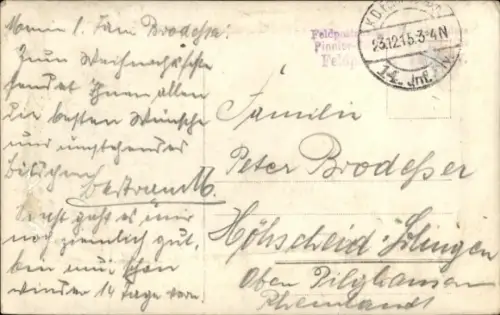 M. l. Fam. Brodeßer!
Zum Weihnachtsfeste
sendet Ihnen allen
die besten Wünsche
und umstehendes
Bildchen
Bertram M.
Sonst geht es mir
noch ziemlich gut,
bin nun schon
wieder 14 Tage vorn.
Feldpost
23.12.15. 3-4 N
14. Inf.
Familie
Peter Brodeßer
Höhscheid-Solingen
Oben Pilghausen
Rheinland